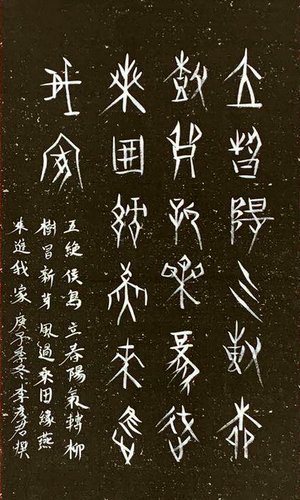 立春陽气轉柳
樹冒新芽風過
桑田綠燕來進
我家
五絕侯鳥立春陽氣轉柳
樹冒新芽風過桑田綠燕
來進我家庚子季冬李彥君撰